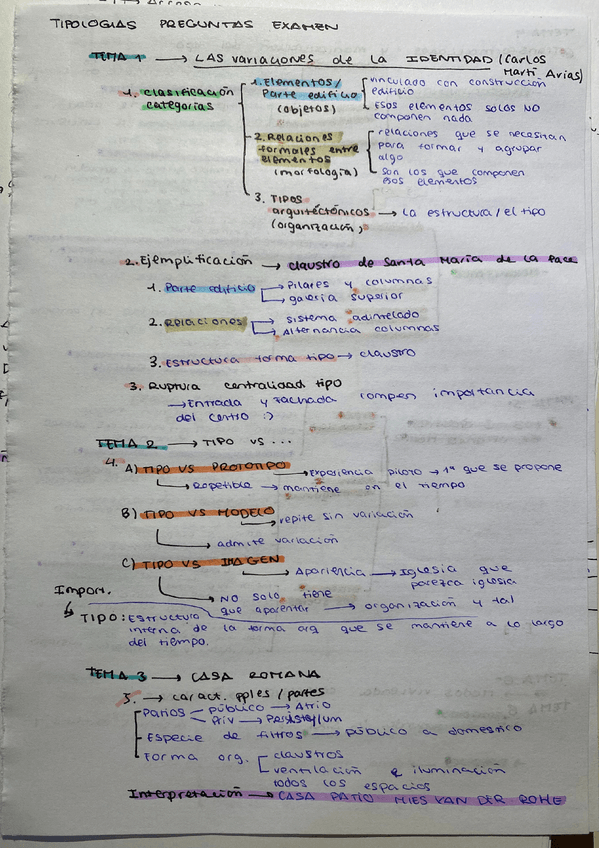 TIPOLOGIAS PREGUNTAS EXAMEN
TEMA 1 → LAS variaciones de la IDENTIDAD (Carlos
Martí Arias)
1. Clasificación
categorías
1. Elementos/
Parte edificio
(objetos)
vinculado con construcción
edificio
Esos elementos solos NO
componen nada
2. Relaciones
formales entre
elementos
(morfología)
relaciones que se necesitan
para formar y agrupar
algo
son los que componen
esos elementos
3. TIPOS
arquitectónicos → La estructura/el tipo
(organización)
2. Ejemplificación → claustro de Santa María de la Pace
1. Parte edificio → Pilares y columnas
→ galería superior
2. Relaciones → sistema adintelado
→ Alternancia columnas
3. Estructura forma tipo → claustro
3. Ruptura centralidad tipo
→ Entrada y fachada rompen importancia
del centro :)
TEMA 2 → TIPO VS ...
4. A) TIPO VS PROTOTIPO → Experiencia piloto → 1ª que se propone
→ Repetible → mantiene en el tiempo
B) TIPO VS MODELO → repite sin variación
→ admite variación
C) TIPO VS IMAGEN → Apariencia → Iglesia que
parezca iglesia
→ NO solo tiene
que aparentar → organización y tal
Import.
TIPO: Estructura
interna de la forma org que se mantiene a lo largo
del tiempo.
TEMA 3 → CASA ROMANA
5. → caract. pples / partes
Patios público → Atrio
Priv → Peristylum
Especie de filtros → público a doméstico
Forma org. claustros
ventilación e iluminación
todos los espacios
Interpretación → CASA PATIO MIES VAN DER ROHE